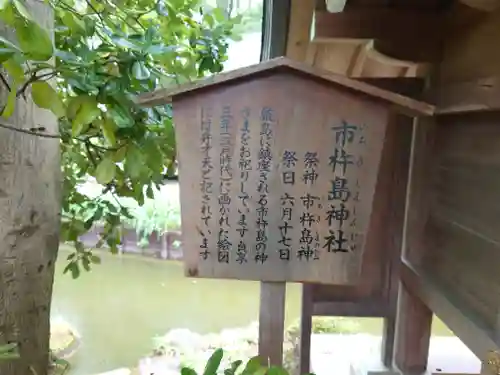 市杵島神社
祭神 市杵島神
祭日 六月十七日
厳島に鎮座される市杵島の神
さまをお祀りしています 貞享
三年(江戸時代)に画かれた絵図
には弁天と記されています